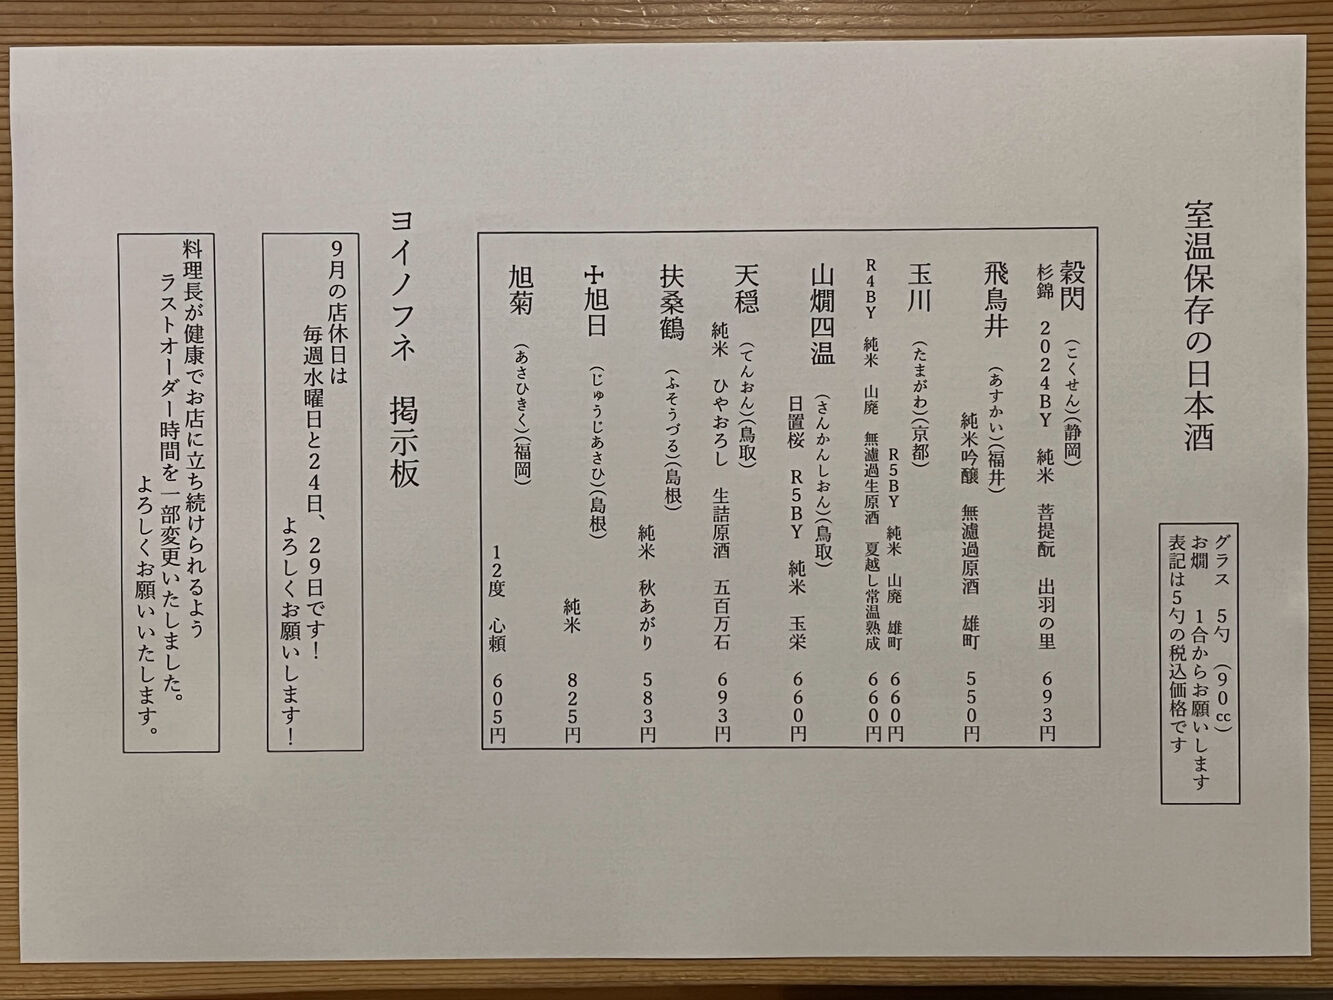 室温保存の日本酒
グラス　5勺　（90cc）
お燗　1合からお願いします
表記は5勺の税込価格です
穀閃　（こくせん）（静岡）
杉錦　2024BY　純米　菩提酛　出羽の里　693円
飛鳥井　（あすかい）（福井）
純米吟醸　無濾過原酒　雄町　550円
玉川　（たまがわ）（京都）
R5BY　純米　山廃　雄町　660円
R4BY　純米　山廃　無濾過生原酒　夏越し常温熟成　660円
山燗四温　（さんかんしおん）（鳥取）
日置桜　R5BY　純米　玉栄　660円
天穏　（てんおん）（鳥取）
純米　ひやおろし　生詰原酒　五百万石　693円
扶桑鶴　（ふそうづる）（島根）
純米　秋あがり　583円
☩旭日　（じゅうじあさひ）（島根）
純米　825円
旭菊　（あさひきく）（福岡）
12度　心頼　605円
ヨイノフネ　掲示板
9月の店休日は
毎週水曜日と24日、29日です！
よろしくお願いします！
料理長が健康でお店に立ち続けられるよう
ラストオーダー時間を一部変更いたしました。
よろしくお願いいたします。